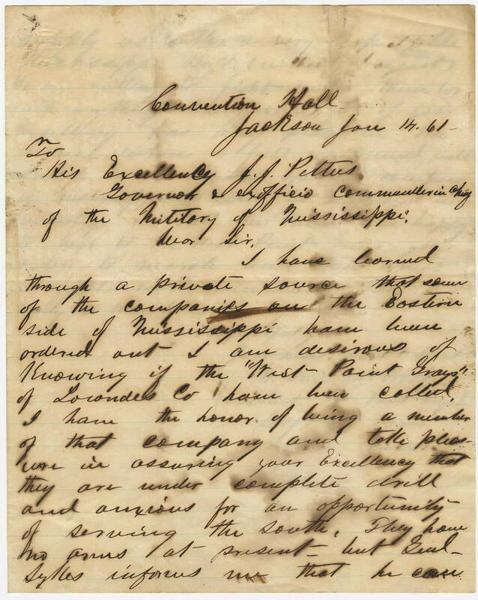 Convention Hall
Jackson Jan 14. 61
To
His Excellency J. J. Pettus
Governor & exofficio Commander in Chief
of the Military of Mississippi.
Dear Sir,
I have learned
through a private source that some
of the companies on the Eastern
side of Mississippi have been
ordered out I am desirous of
Knowing if the "West Point Grays"
of Lowndes Co have been called,
I have the honor of being a member
of that company and take pleas
ure in assuring your Excellency that
they are under complete drill
and anxious for an opportunity
of serving the South. They have
no arms at present - but Genl-
Sykes informs me that he can